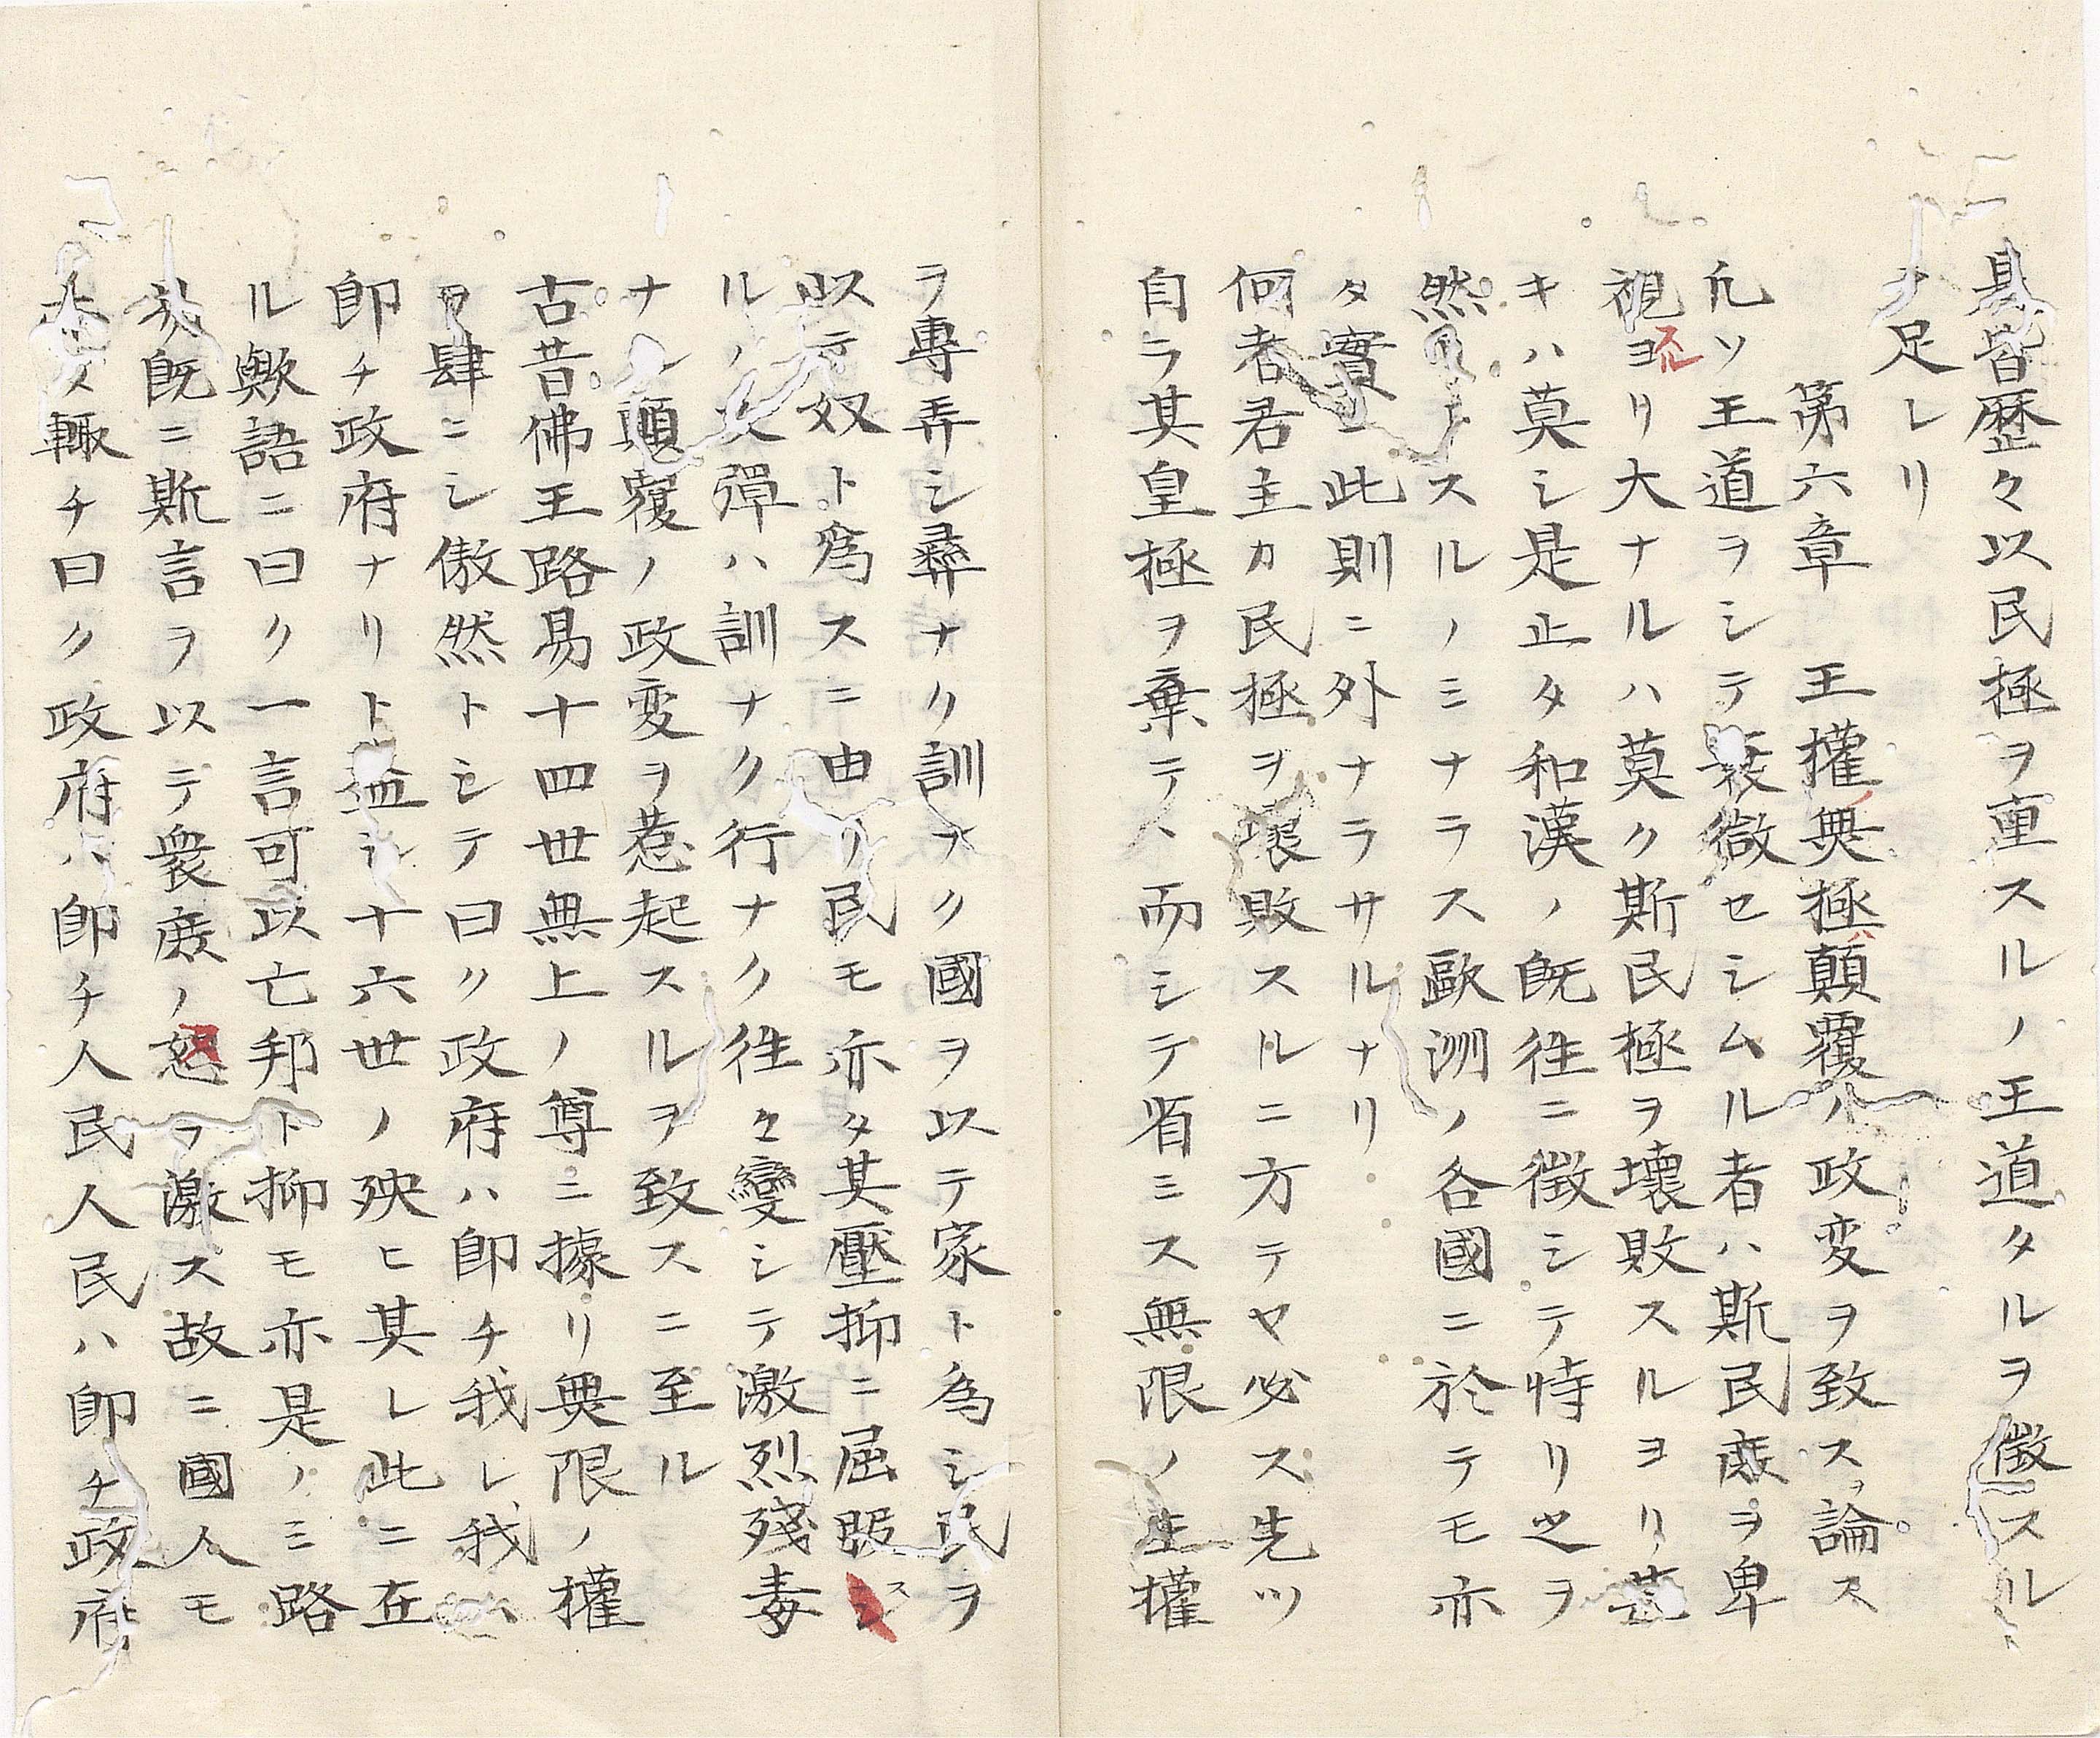 具皆歴々以民極ヲ重スルノ王道タルヲ徴スル
ヲ足レリ
第六章　王權無極顛覆ノ政変ヲ致スヲ論ス
凢ソ王道ヲシテ衰微セシムル者ハ斯民庶ヲ卑
視スルヨリ大ナルハ莫ク斯民極ヲ壊敗スルヨリ甚
キハ莫シ是止タ和漢ノ既徃ニ徴シテ恃リ之ヲ
然リトスルノミナラス歐洲ノ各國ニ於テモ亦
タ實ニ此則ニ外ナラサルナリ
何者君主カ民極ヲ壊敗スルニ方テヤ必ス先ツ
自ラ其皇極ヲ棄テ、而シテ省ミス無限ノ主權
ヲ專弄シ彛ナク訓ナク國ヲ以テ家ト為シ民ヲ
以テ奴ト為スニ由リ民モ亦タ其壓抑ニ屈服ス
ルノ彛ハ訓ナク行ナク徃々變シテ激烈殘毒
ナル顛覆ノ政変ヲ惹起スルヲ致スニ至ル
古昔佛王路易十四世無上ノ尊ニ據リ無限ノ權
ヲ肆ニシ傲然トシテ曰ク政府ハ卽チ我レ我ハ
卽チ政府ナリト盖シ十六世ノ殃ヒ其レ此ニ在
ル歟語ニ曰ク一言可以亡邦ト抑モ亦是ノミ路
易既ニ斯言ヲ以テ衆庶ノ怒ヲ激ス故ニ國人モ
亦タ輙チ曰ク政府ハ卽チ人民人民ハ卽チ政府